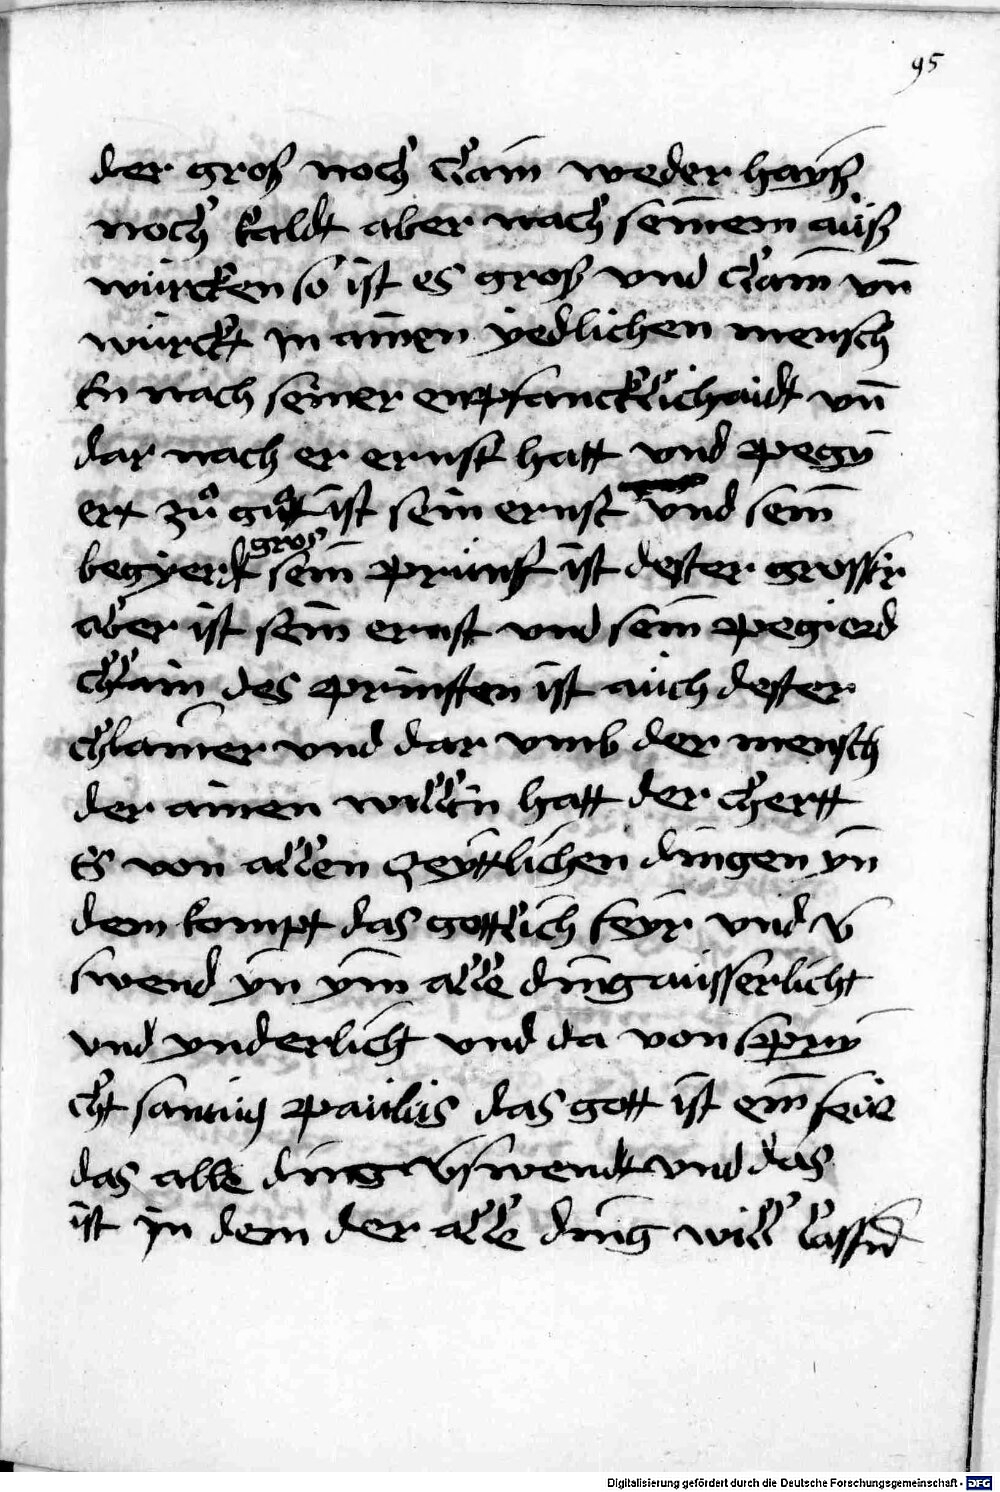 95
der groß noch clain weder hayß
noch kaldt aber nach seinem auß
würcken so ist es groß vnd clain vn̄
würckt jn ainen yedlichen mensch
en nach seiner enpfancklichaidt vn̄
dar nach er ernst hatt vnd pegy
ert zů gůt ist sein ernst vnd sein
begyerd gros sein prunst ist dester grosser
aber ist sein ernst vnd sein pegierd
chlain des prinsten ist auch dester
chlainer vnd dar vmb der mensch
der ainen willen hatt der chertt
es von allen zeyttlichen dingen yn
dem kompt das gottlich feyr vnd v̄
swend yn ym alle ding ausserlicht
vnd ynderlicht vnd da von spry
cht santus paulus das gott ist ein feür
das alle ding v̄swendt vnd das
ist jn dem der alle ding will lassn̄
Digitalisierung gefördert durch die Deutsche Forschungsgemeinschaft - DFG